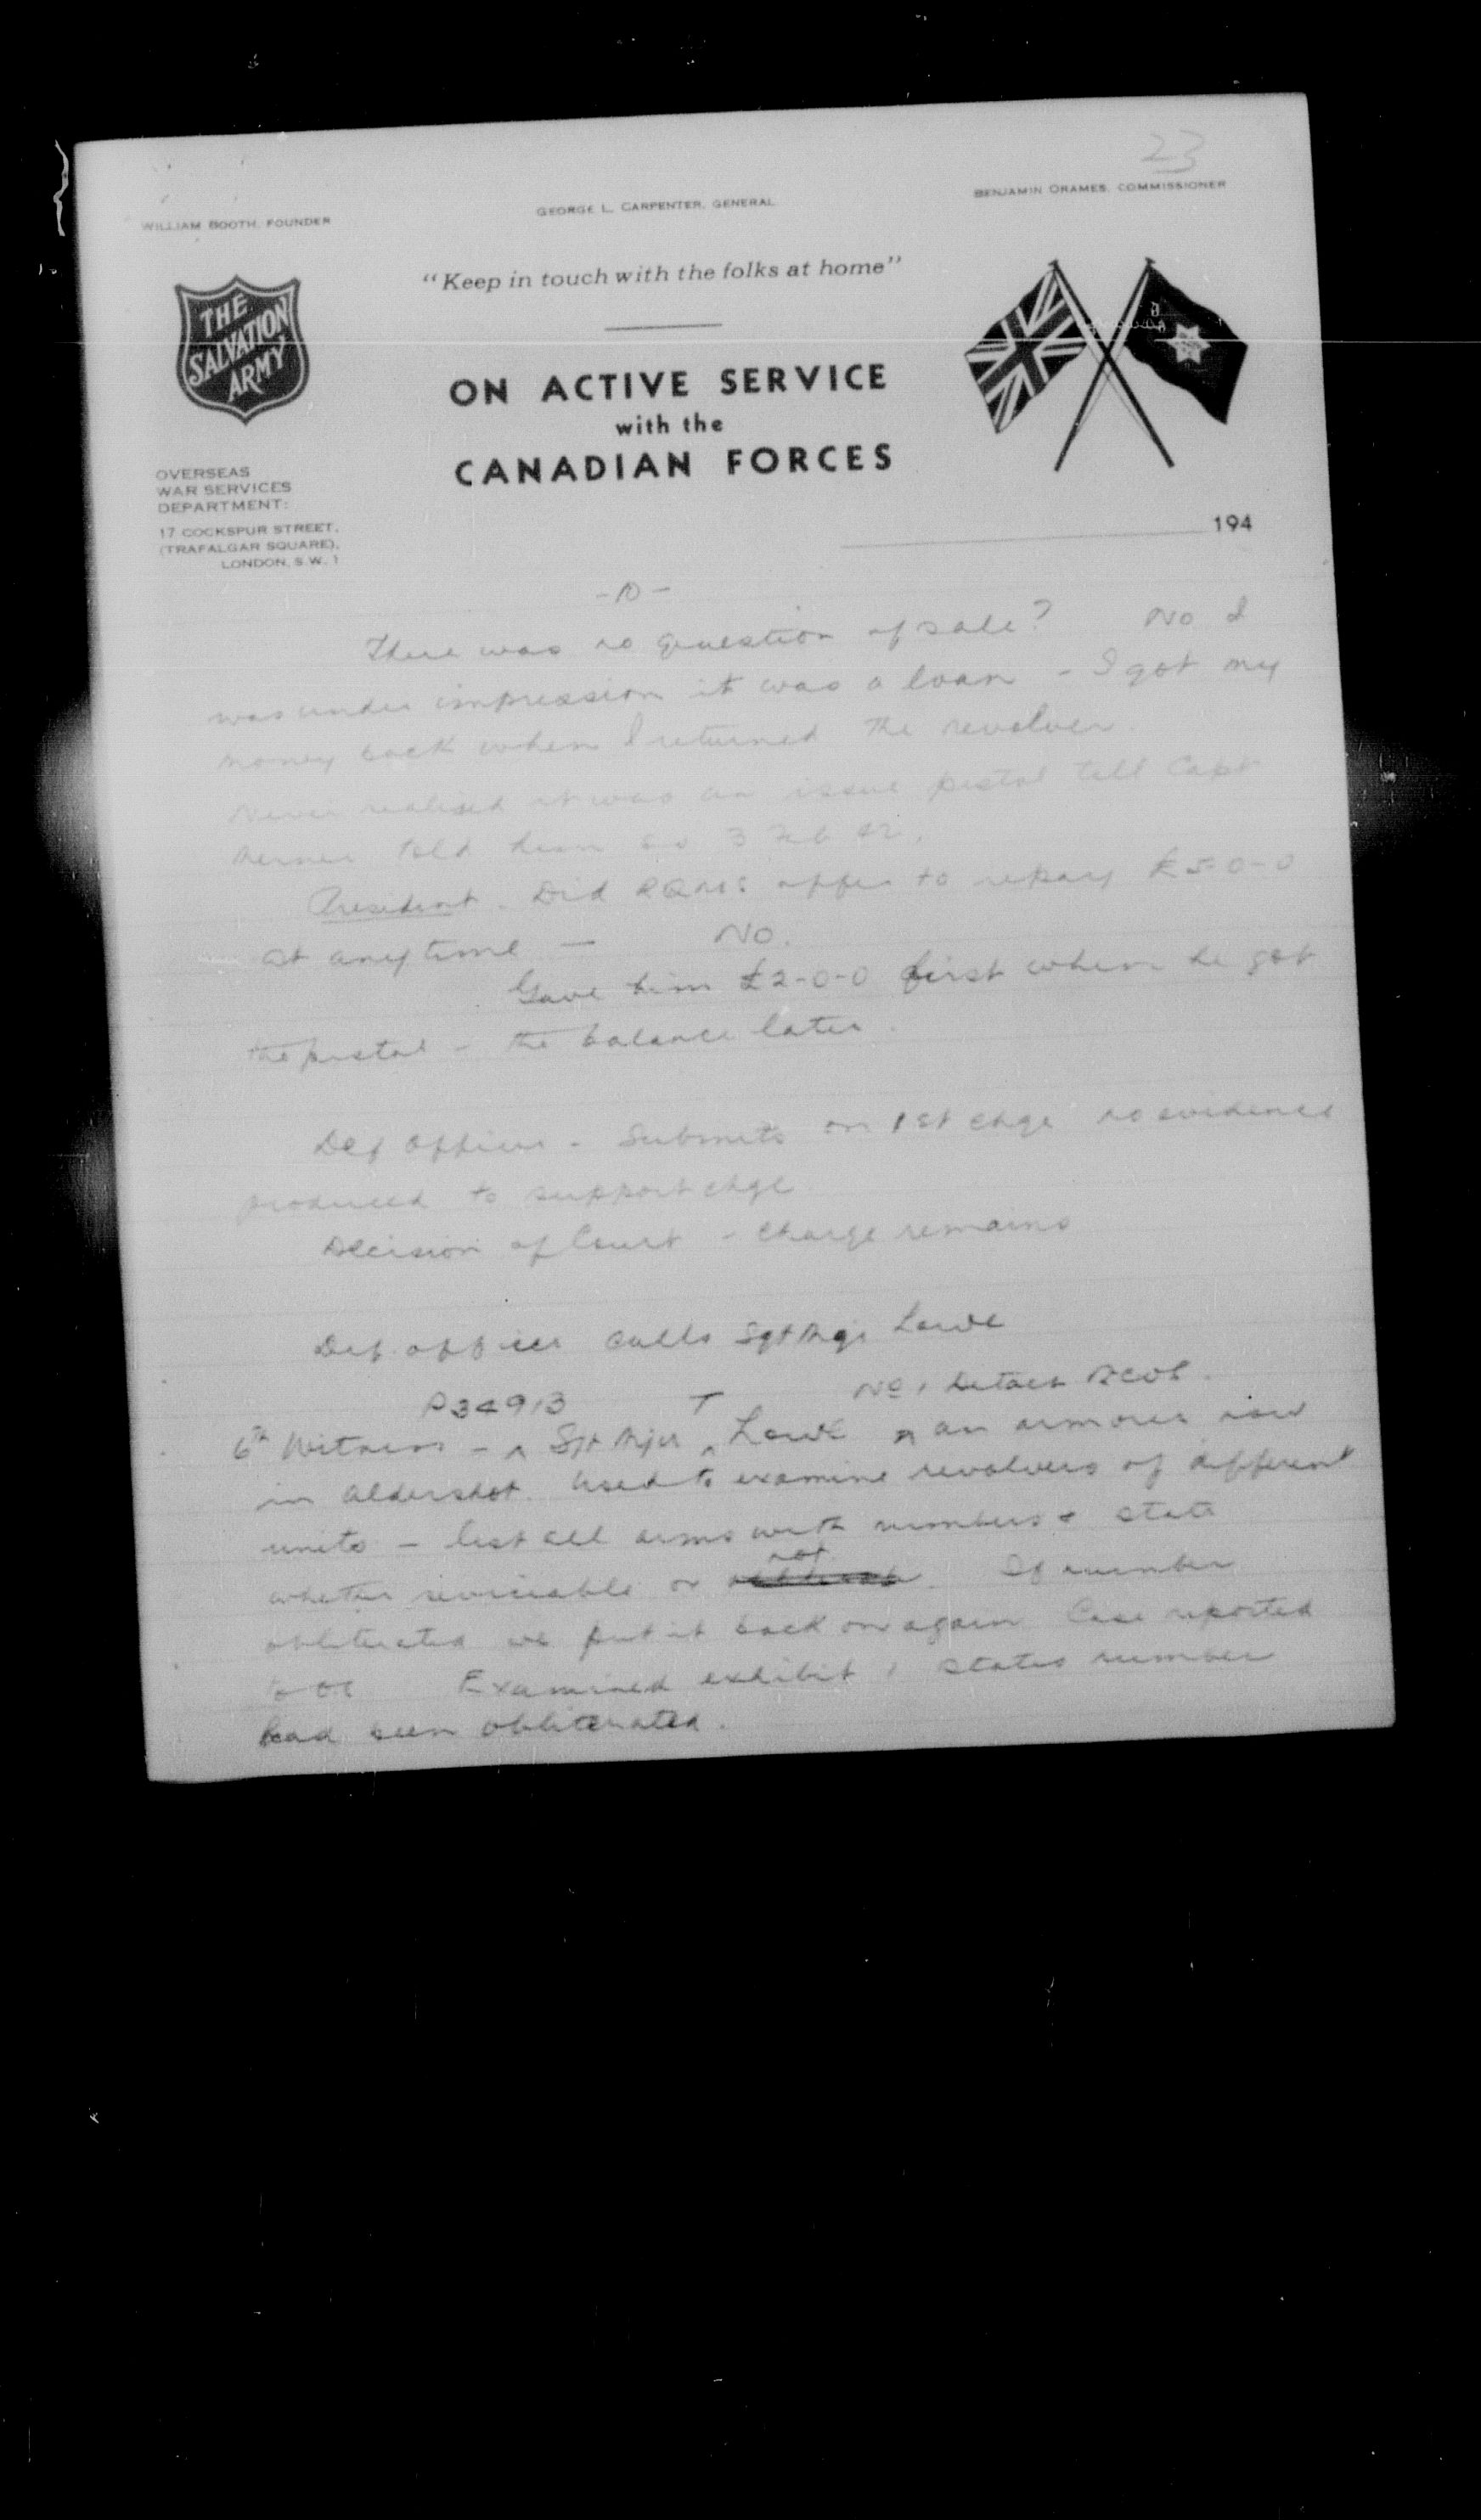 23
WILLIAM BOOTH, FOUNDER
GEORGE L. CARPENTER, GENERAL
BENJAMIN ORAMES, COMMISSIONER
"Keep in touch with the folks at home"
THE
SALVATION
ARMY
ON ACTIVE SERVICE
with the
CANADIAN FORCES
OVERSEAS
WAR SERVICES
DEPARTMENT:
17 COCKSPUR STREET,
(TRAFALGAR SQUARE),
LONDON, S.W. 1
194
- 10 -
There was no question of sale? No I
was under impression it was a loan - I got my
money back when I returned the revolver
Never realised it was an issue pistol till Capt
told him 3 Feb 42.
President - Did RQMS offer to repay £5-0-0
at any time — No.
Gave him £2-0-0 first when he got
the pistol - the balance later.
Def Officer - Submits on 1st chge no evidence
produced to support chge
Decision of Court - Charge remains
Def. officer calls Sgt Mjr Lowe
P34913 T No 1 Detach
6th Witness - ^ Sgt Mjr ^ Lowe an armourer now
in Aldershot. Used to examine revolvers of different
units - list all arms with numbers & state
whether serviceable or not. If number
obliterated we put it back on again Case reported
to OC Examined exhibit 1 states number
had been obliterated.